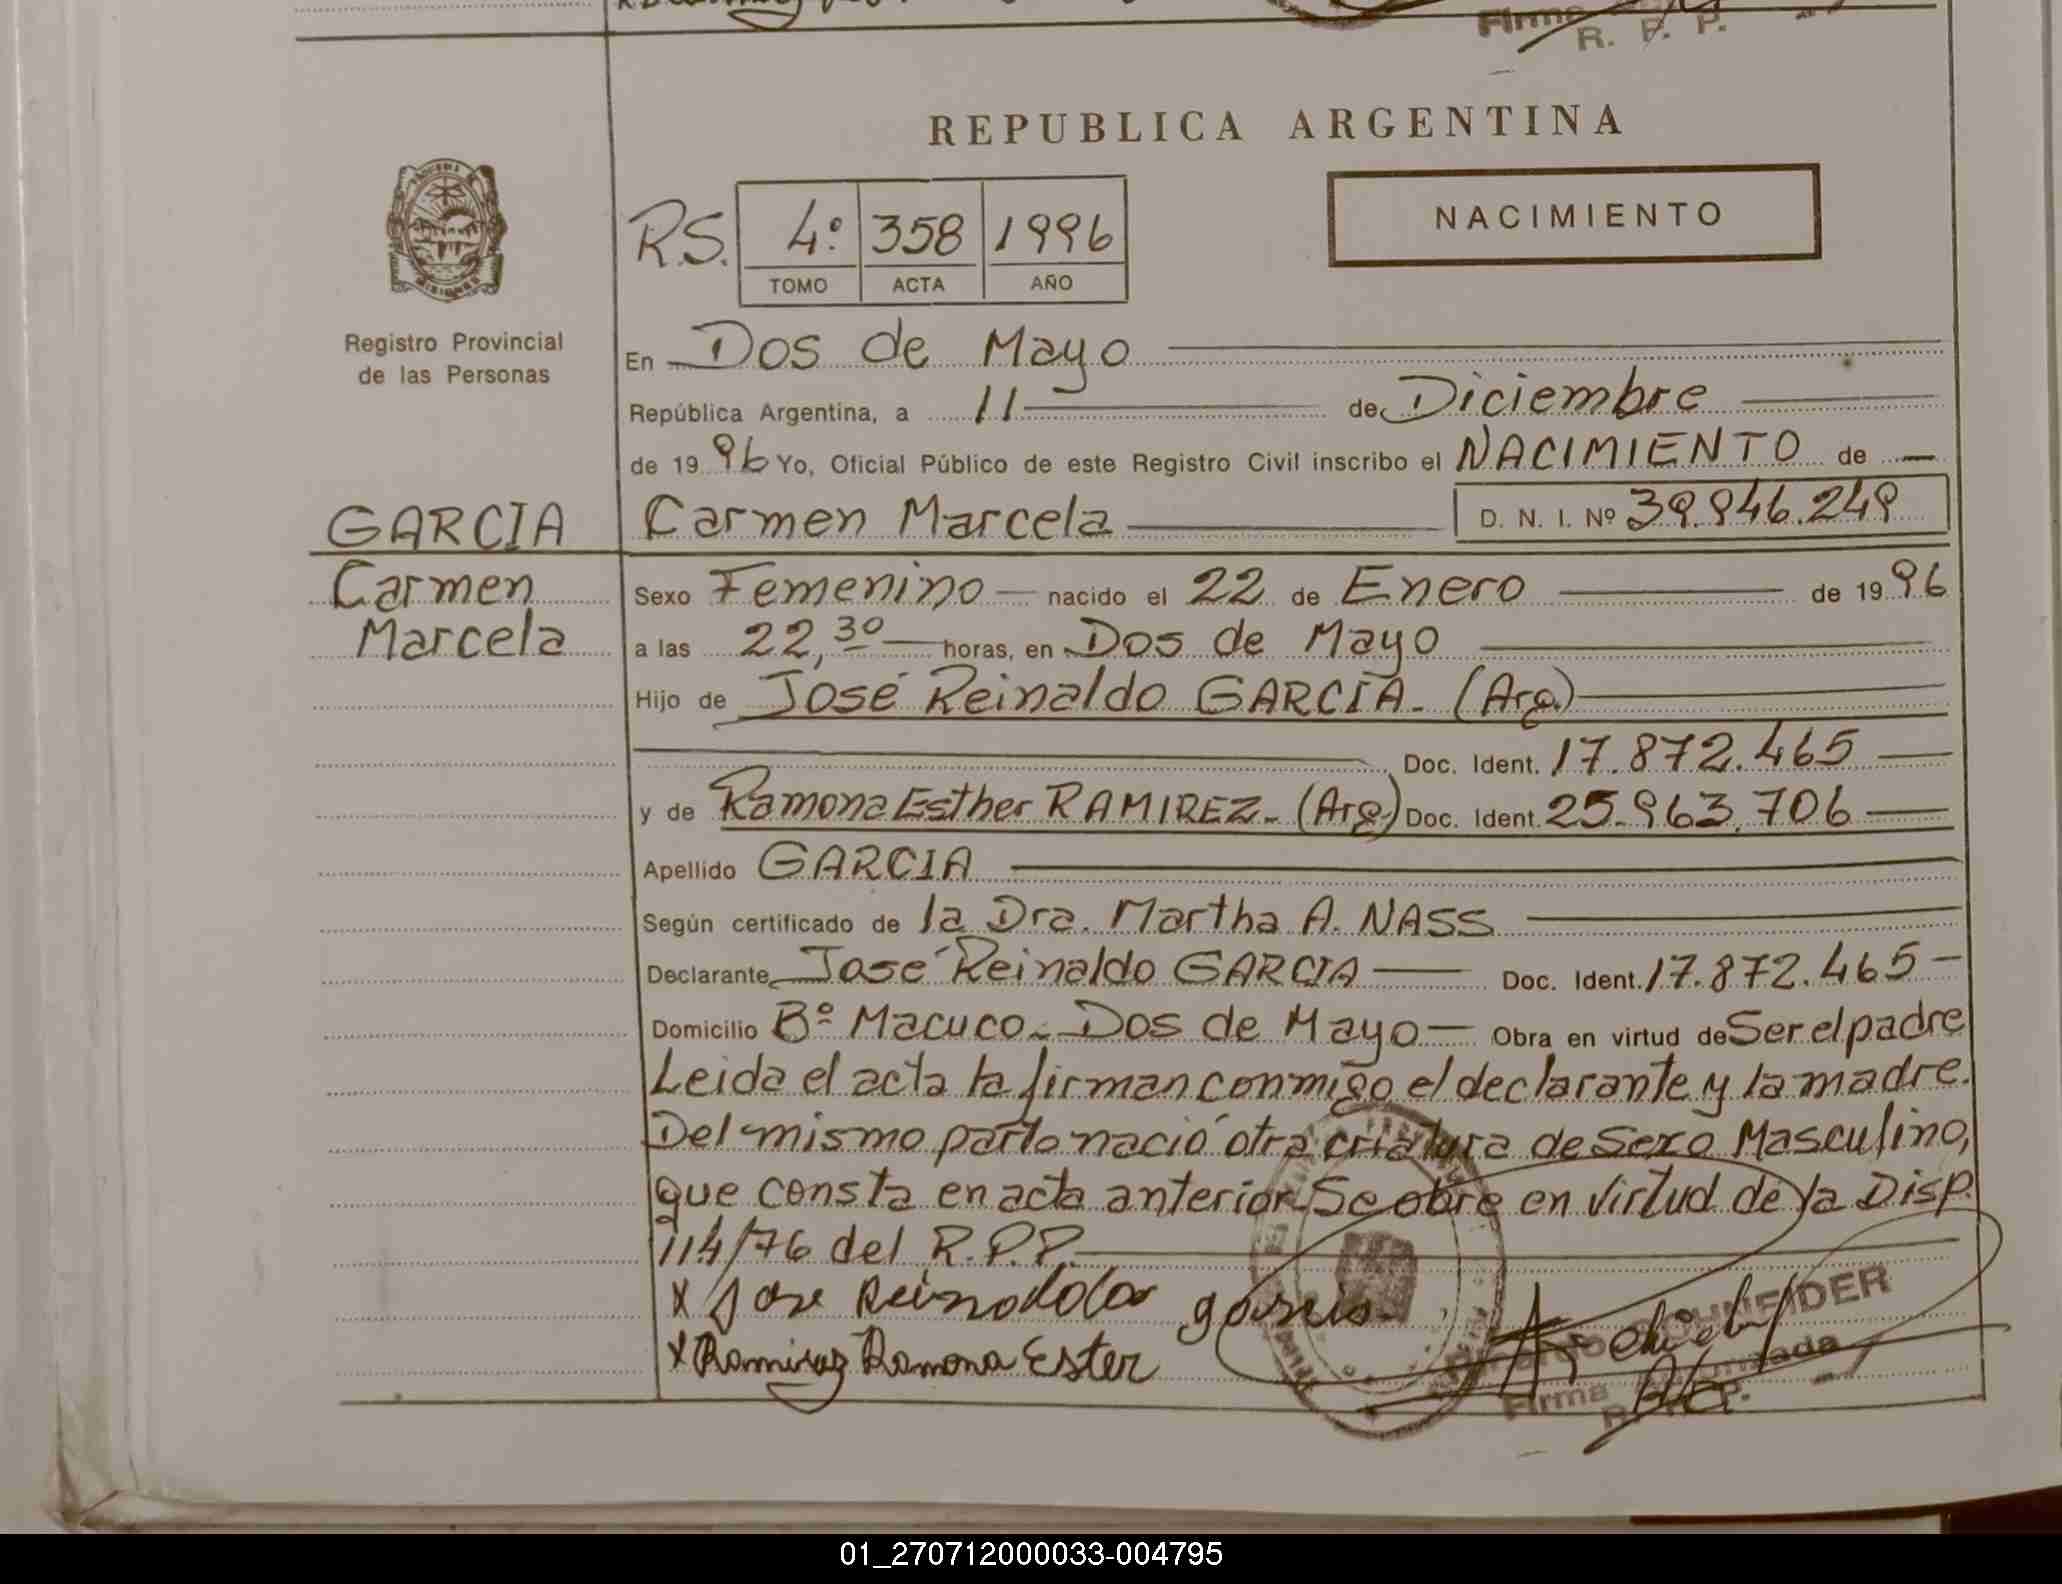 Firma
R. P. P.
REPUBLICA ARGENTINA
NACIMIENTO
R.S. 4º 358 1996
TOMO ACTA AÑO
Registro Provincial
de las Personas
En Dos de Mayo
República Argentina, a 11 de Diciembre
de 1996 Yo, Oficial Público de este Registro Civil inscribo el NACIMIENTO de
GARCIA Carmen Marcela D. N. I. Nº 39.946.249
Carmen Sexo Femenino nacido el 22 de Enero de 1996
Marcela a las 22,30 horas, en Dos de Mayo
Hijo de José Reinaldo GARCÍA. (Arg.)
Doc. Ident. 17.872.465
y de Ramona Esther RAMIREZ. (Arg.) Doc. Ident. 25.963.706
Apellido GARCIA
Según certificado de la Dra. Martha A. NASS
Declarante José Reinaldo GARCIA Doc. Ident. 17.872.465
Domicilio Bº Macuco. Dos de Mayo Obra en virtud de Ser el padre
Leida el acta la firman conmigo el declarante y la madre.
Del mismo parto nació otra criatura de Sexo Masculino,
que consta en acta anterior. Se obre en virtud de la Disp.
114/76 del R.P.P.
x Jose Reinaldo garcia
x Ramirez Ramona Ester
SCHNEIDER
Firma Autorizada
R. P. P.
01_270712000033-004795